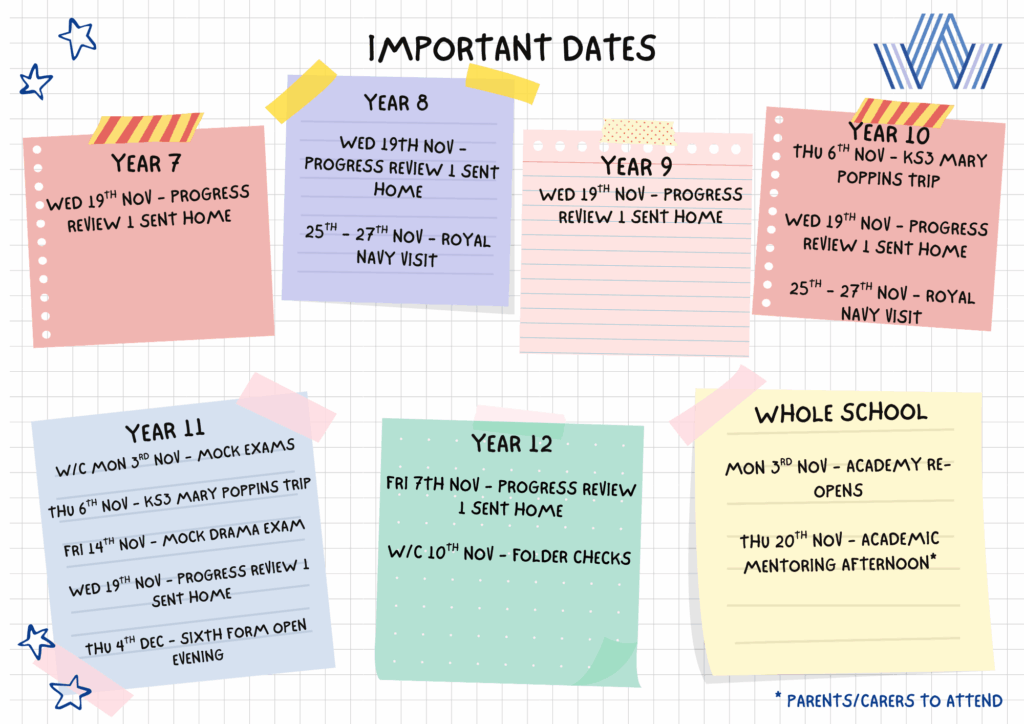 IMPORTANT DATES
YEAR 7
WED 19TH NOV - PROGRESS
REVIEW 1 SENT HOME
YEAR 8
WED 19TH NOV -
PROGRESS REVIEW 1 SENT
HOME
25TH - 27TH NOV - ROYAL
NAVY VISIT
YEAR 9
WED 19TH NOV - PROGRESS
REVIEW 1 SENT HOME
YEAR 10
THU 6TH NOV - KS3 MARY
POPPINS TRIP
WED 19TH NOV - PROGRESS
REVIEW 1 SENT HOME
25TH - 27TH NOV - ROYAL
NAVY VISIT
YEAR 11
W/C MON 3RD NOV - MOCK EXAMS
THU 6TH NOV - KS3 MARY POPPINS TRIP
FRI 14TH NOV - MOCK DRAMA EXAM
WED 19TH NOV - PROGRESS REVIEW 1
SENT HOME
THU 4TH DEC - SIXTH FORM OPEN
EVENING
YEAR 12
FRI 7TH NOV - PROGRESS REVIEW
1 SENT HOME
W/C 10TH NOV - FOLDER CHECKS
WHOLE SCHOOL
MON 3RD NOV - ACADEMY RE-
OPENS
THU 20TH NOV - ACADEMIC
MENTORING AFTERNOON*
* PARENTS/CARERS TO ATTEND